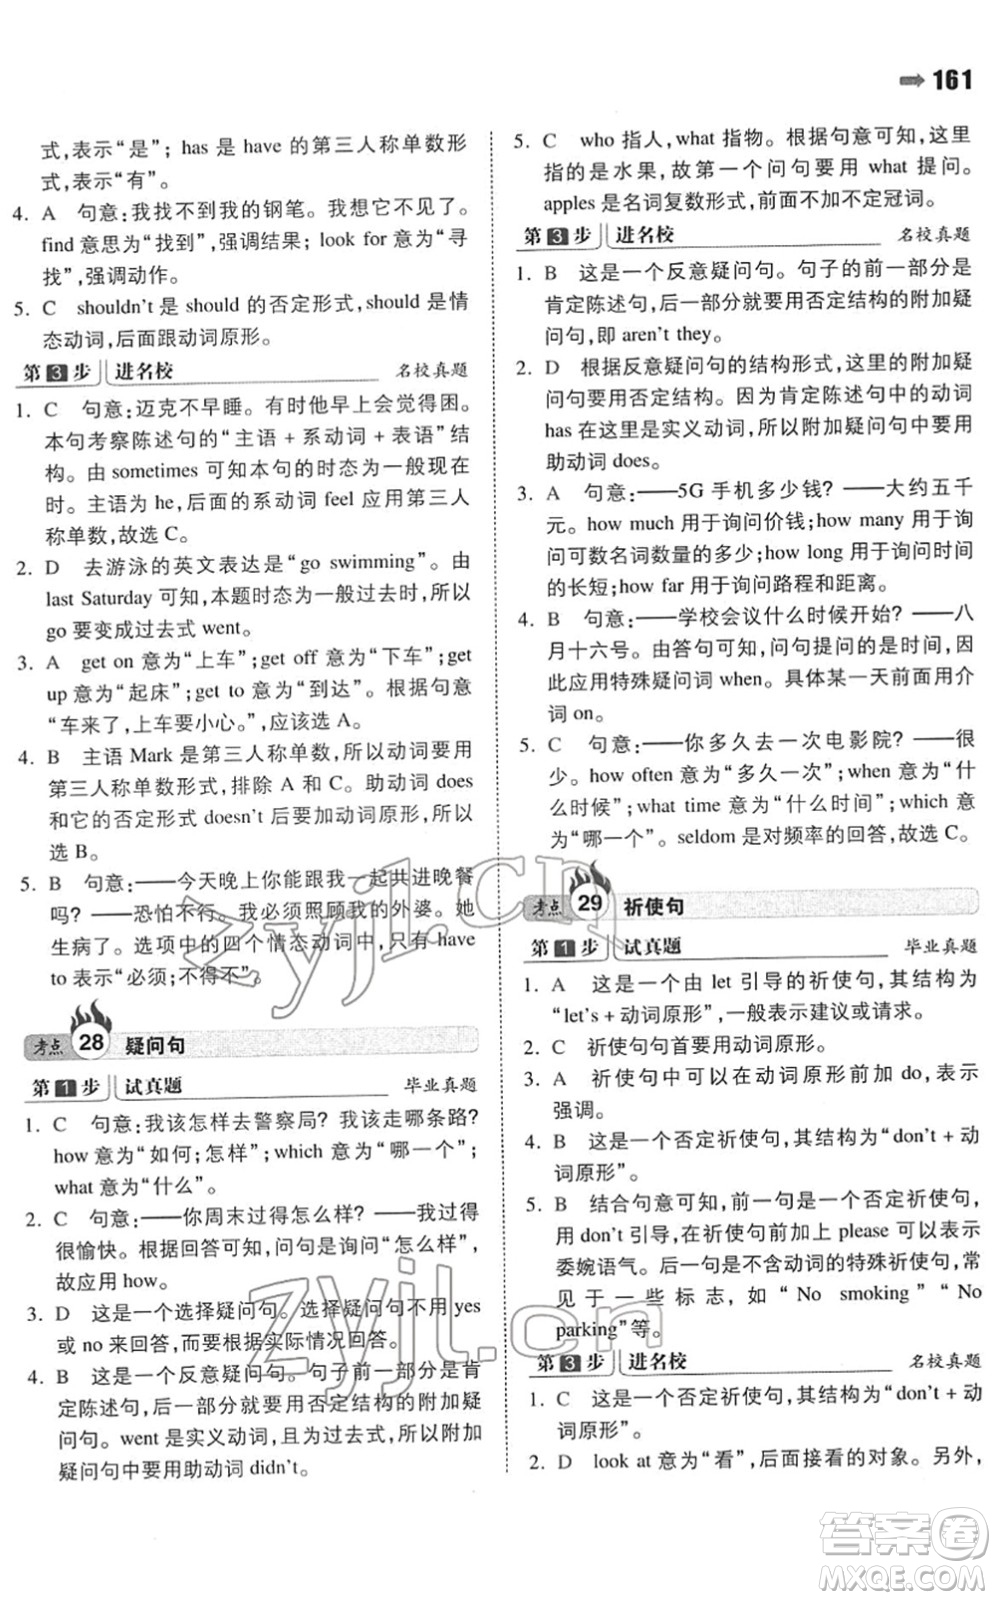 161
式,表示“是”;has 是 have 的第三人称单数形
式,表示“有”。
4. A 句意:我找不到我的钢笔。我想它不见了。
find 意思为“找到”,强调结果;look for 意为“寻
找”,强调动作。
5. C shouldn't 是 should 的否定形式,此外是情
态动词,后面跟动词原形。
第3步 进名校 名校真题
1. C 句意:迈克不早睡。有时他早上会觉得困。
本句考察陈述句的“主语 + 系动词 + 表语”结
构。由 sometimes 可知本句的时态为一般现在
时。主语为 he,后面的系动词 feel 应用第三人
称单数,故选 C。
2. D 去游泳的英文表达是“go swimming”。由
last Saturday 可知,本题时态为一般过去时,所以
go 要变成过去式 went。
3. A get on 意为“上车”;get off 意为“下车”;get
up 意为“起床”;get to 意为“到达”。根据句意
“车来了,上车要小心。”,应该选 A。
4. B 主语 Mark 是第三人称单数,所以动词要用
第三人称单数形式,排除 A 和 C。助动词 does
和它的否定形式 doesn't 后要加动词原形,所以
选 B。
5. B 句意:——今天晚上你能跟我一起共进晚餐
吗?——恐怕不行。我必须照顾我的外婆。她
生病了。选项中的四个情态动词中,只有 have
to 表示“必须;不得不”。
考点 28 疑问句
第1步 试真题 毕业真题
1. C 句意:我该怎样去警察局?我该走哪条路?
how 意为“如何;怎样”;which 意为“哪一个”;
what 意为“什么”。
2. C 句意:——你周末过得怎么样?——我过得
很愉快。根据回答可知,问句是询问“怎么样”,
故应用 how。
3. D 这是一个选择疑问句。选择疑问句不用 yes
或 no 来回答,应根据实际情况回答。
4. B 这是一个反意疑问句。句子前一部分是肯
定陈述句,后一部分就要用否定结构的附加疑
问句。went 是实义动词,且为过去式,所以附加
疑问句中要用助动词 didn't。
5. C who 指人,what 指物。根据句意可知,这里
指的是水果,故第一个问句要用 what 提问。
apples 是名词复数形式,前面不加不定冠词。
第3步 进名校 名校真题
1. B 这是一个反意疑问句。句子的前一部分是
肯定陈述句,后一部分就要用否定结构的附加疑
问句,即 aren't they。
2. D 根据反意疑问句的结构形式,这里的附加疑
问句要用否定结构。因为肯定陈述句中的动词
has 在这里是实义动词,所以附加疑问句中要用
助动词 does。
3. A 句意:——5G 手机多少钱?——大约五千
元。how much 用于询问价钱;how many 用于询
问可数名词数量的多少;how long 用于询问时间
的长短;how far 用于询问路程和距离。
4. B 句意:——学校会议什么时候开始?——八
月十六号。由答句可知,问句提问的是时间,因
此应用特殊疑问词 when。具体某一天前面用介
词 on。
5. C 句意:——你多久去一次电影院?——很
少。how often 意为“多久一次”;when 意为“什
么时候”;what time 意为“什么时间”;which 意
为“哪一个”。seldom 是对频率的回答,故选 C。
考点 29 祈使句
第1步 试真题 毕业真题
1. A 这是一个由 let 引导的祈使句,其结构为
“let's + 动词原形”,一般表示建议或请求。
2. C 祈使句句首要用动词原形。
3. A 祈使句中可以在动词原形前加 do,表示
强调。
4. B 这是一个否定祈使句,其结构为“don't + 动
词原形”。
5. B 结合句意可知,前一句是一个否定祈使句,
用 don't 引导,在祈使句前加上 please 可以表示
委婉语气。后一句是不含动词的特殊祈使句,常
见于一些标志,如“No smoking”“No
parking”等。
第3步 进名校 名校真题
1. C 这是一个否定祈使句,其结构为“don't + 动
词原形”。
2. D look at 意为“看”,后面接看的对象。另外,
zyjl.cn
zyjl.cn
答案卷
MXQE.COM